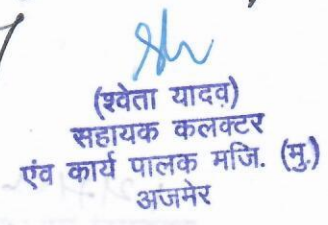 (श्वेता यादव)
सहायक कलक्टर
एंव कार्य पालक मजि. (मु.)
अजमेर